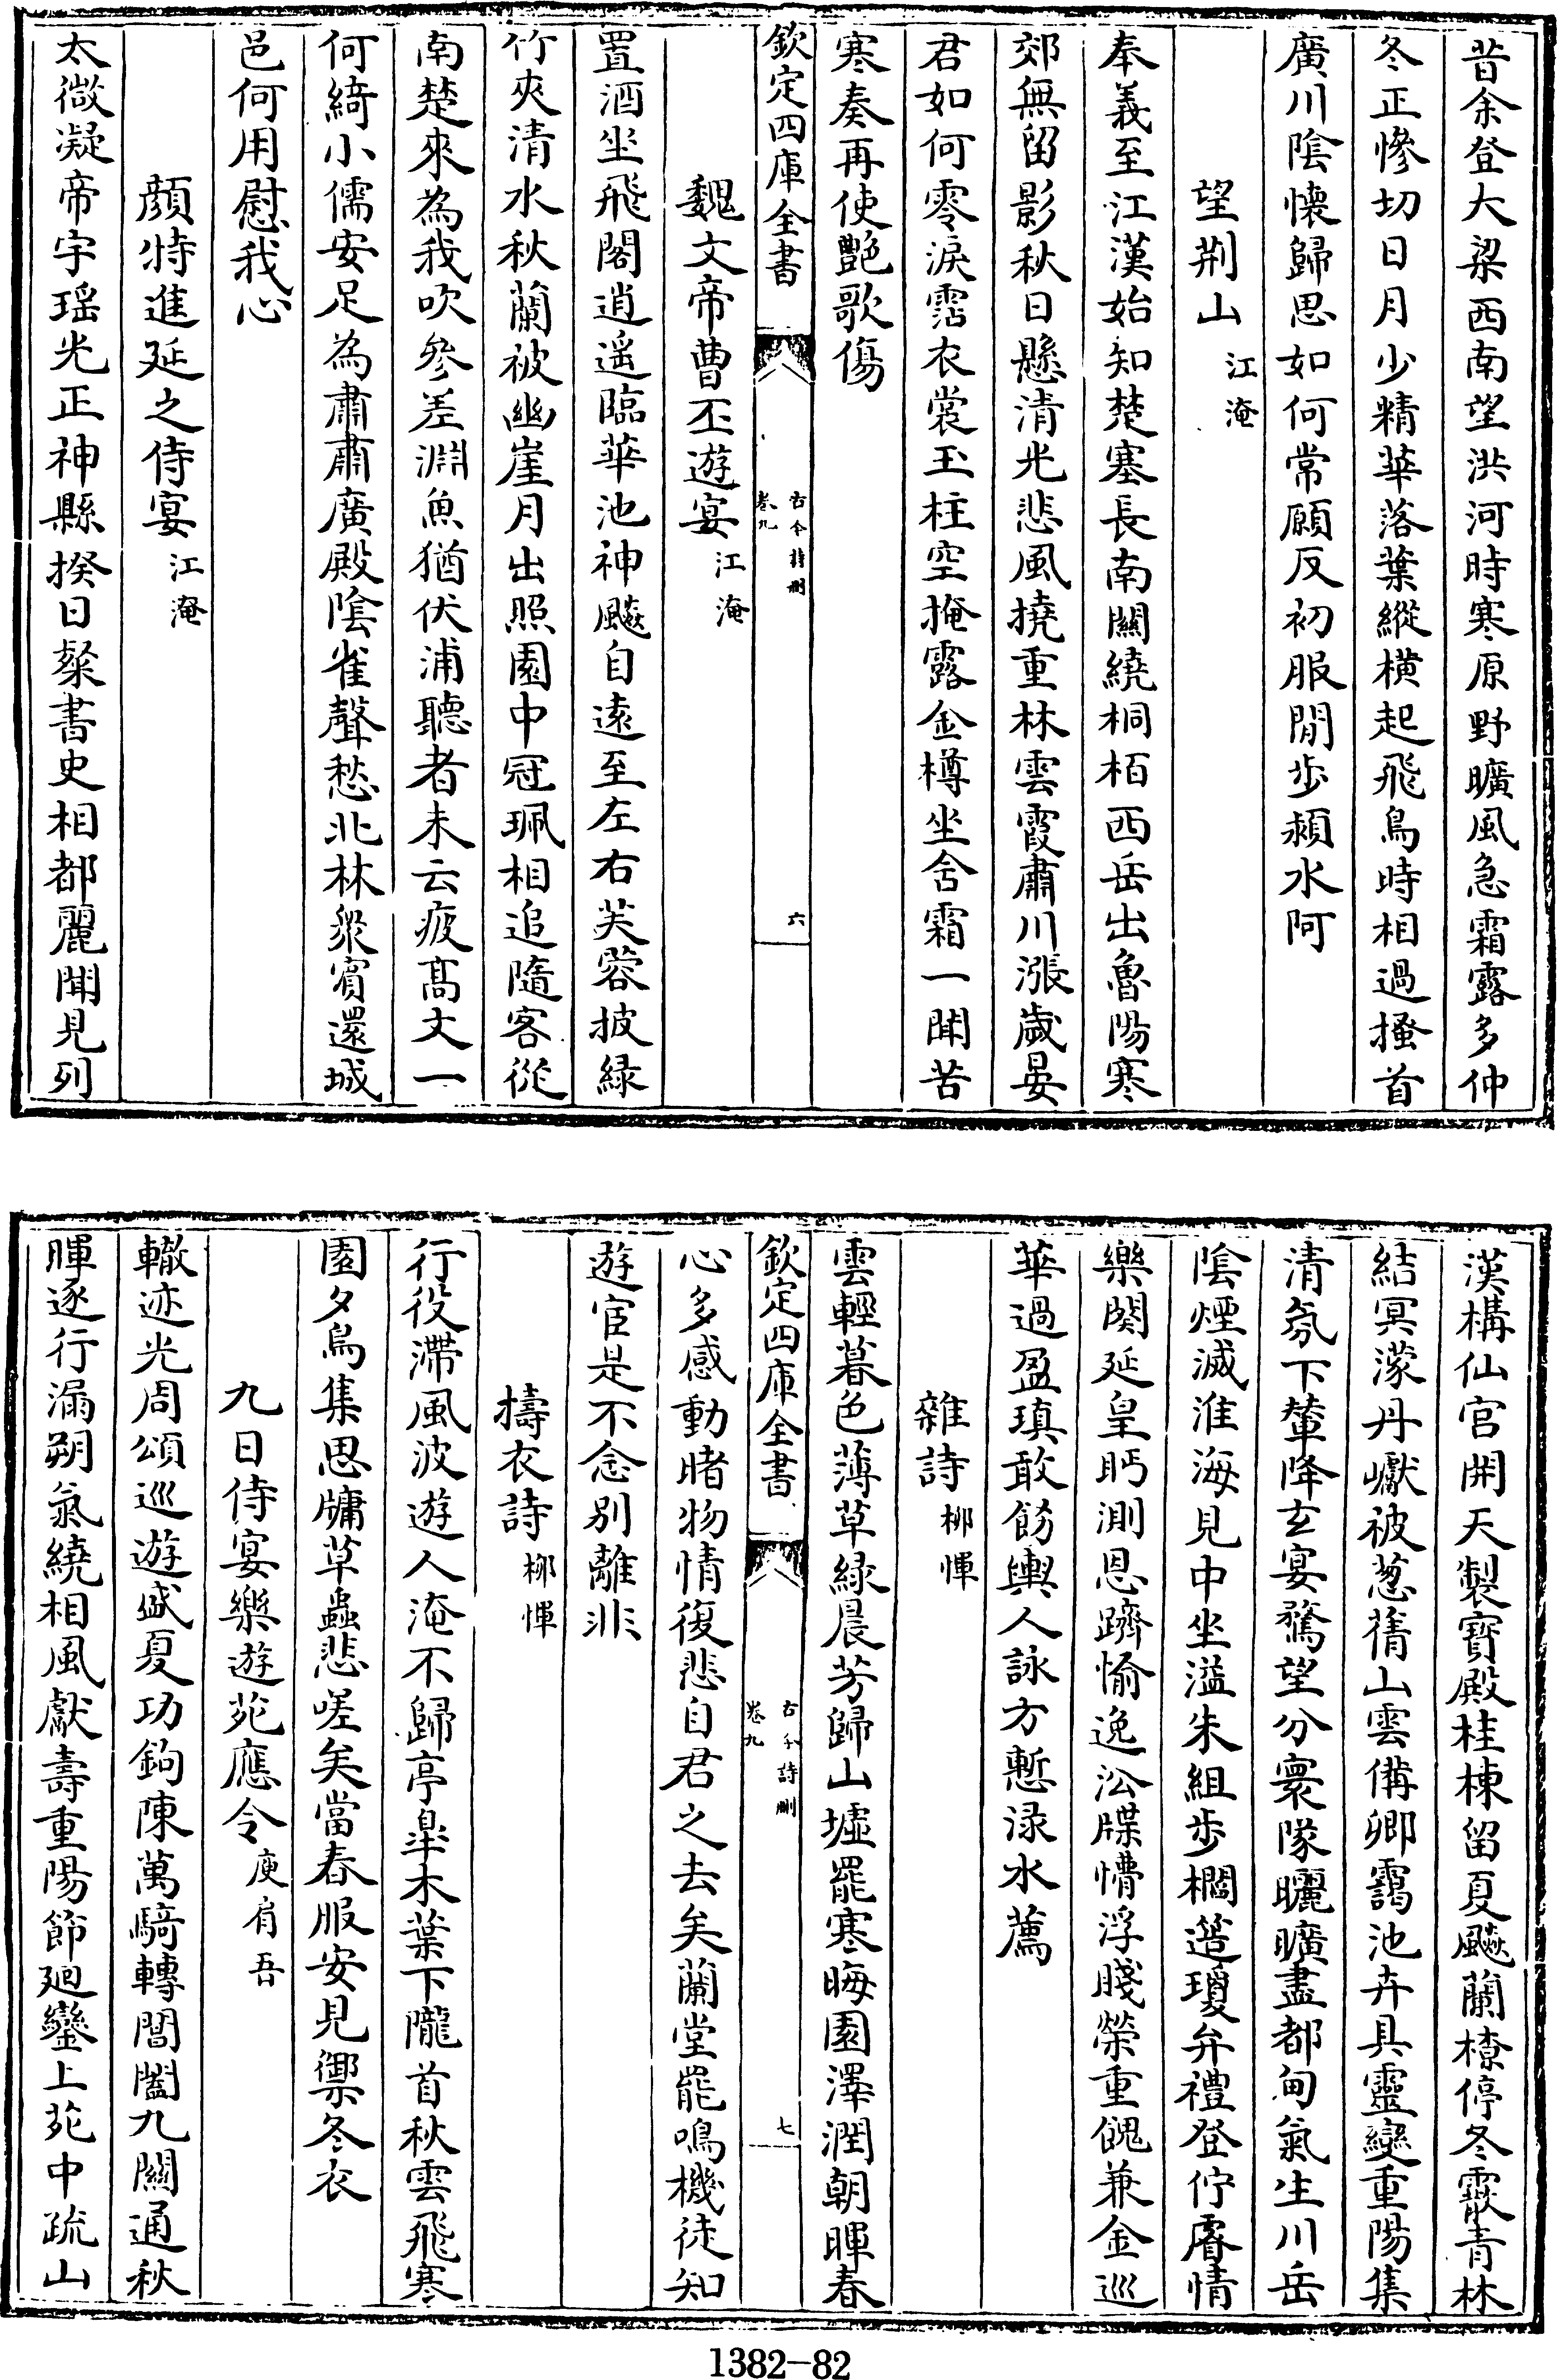 昔余登大梁西南望洪河時寒原野曠風急霜露多仲
冬正慘切日月少精華落葉縱橫起飛鳥時相過搔首
廣川陰懷歸思如何常願反初服閒步潁水阿
望荆山 江淹
奉義至江漢始知楚塞長南關繞桐栢西岳出魯陽寒
郊無留影秋日懸清光悲風撓重林雲霞肅川漲歲晏
君如何零淚霑衣裳玉柱空掩露金樽坐含霜一聞苦
寒奏再使艷歌傷
欽定四庫全書 古今詩刪 卷九 六
魏文帝曹丕遊宴 江淹
置酒坐飛閣逍遥臨華池神飈自遠至左右芙蓉披緑
竹夾清水秋蘭被幽崖月出照園中冠珮相追隨客從
南楚來為我吹參差淵魚猶伏浦聽者未云疲髙文一
何綺小儒安足為肅肅廣殿陰雀聲愁北林衆賓還城
邑何用慰我心
顔特進延之侍宴 江淹
太微凝帝宇瑶光正神縣揆日粲書史相都麗聞見列
漢構仙宫開天製寳殿桂棟留夏飈蘭橑停冬霰青林
結冥濛丹巘被蔥蒨山雲備卿靄池卉具靈變重陽集
清氛下輦降玄宴騖望分寰隊曬曠盡都甸氣生川岳
陰煙滅淮海見中坐溢朱組步櫩簉瓊弁禮登佇睿情
樂闋延皇眄測恩躋愉逸沿牒懵浮賤榮重餽兼金巡
華過盈瑱敢飭輿人詠方慙渌水薦
雜詩 栁惲
雲輕暮色薄草緑晨芳歸山墟罷寒晦園澤潤朝暉春
欽定四庫全書 古今詩刪 卷九 七
心多感動睹物情復悲自君之去矣蘭堂罷鳴機徒知
遊宦是不念别離非
擣衣詩 栁惲
行役滯風波遊人淹不歸亭臯木葉下隴首秋雲飛寒
園夕鳥集思牗草蟲悲嗟矣當春服安見禦冬衣
九日侍宴樂遊苑應令 庾肩吾
轍迹光周頌巡遊盛夏功鉤陳萬騎轉閶闔九關通秋
暉逐行漏朔氣繞相風獻壽重陽節廻鑾上苑中疏山
1382-82